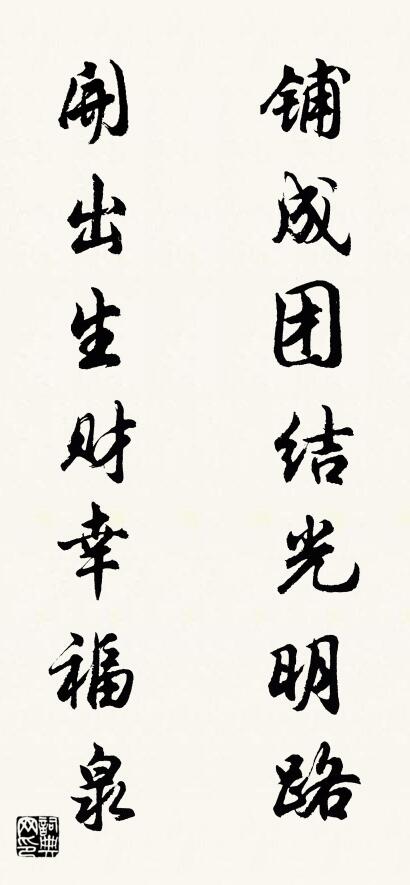 铺成团结光明路
開出生财幸福泉
詞典网印